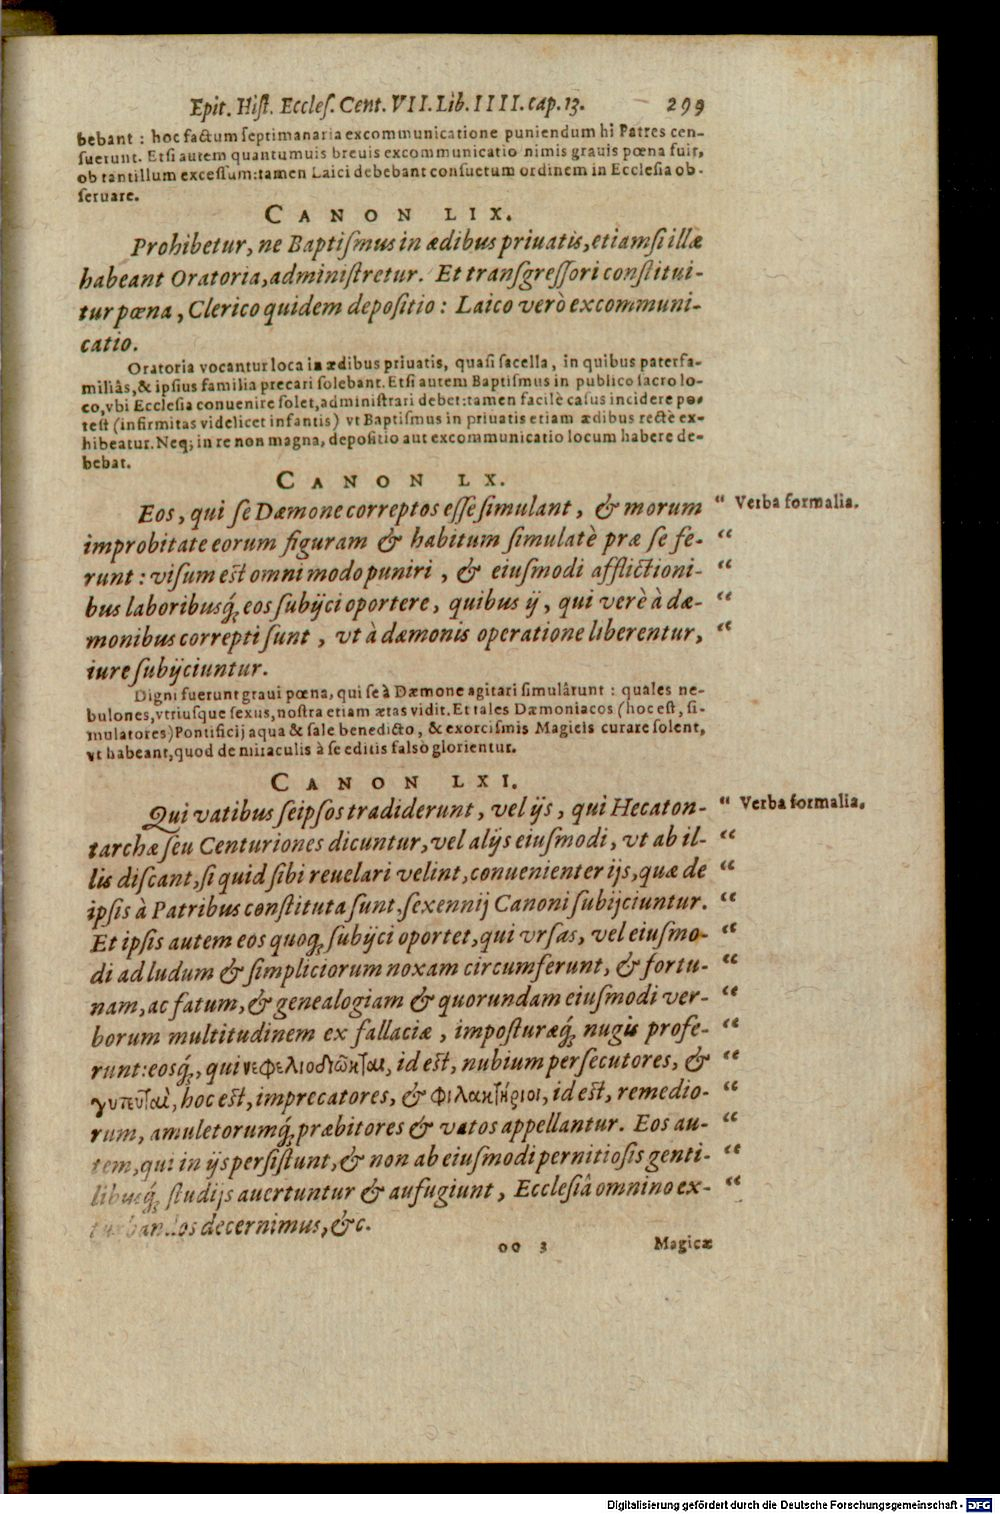 Epit. Hiſt. Eccleſ. Cent. VII. Lib. IIII. cap. 13. 299
bebant : hoc factum ſeptimanaria excommunicatione puniendum hi Patres cen-
ſuerunt. Etſi autem quantumuis breuis excommunicatio nimis grauis pœna fuit,
ob tantillum exceſſum: tamen Laici debebant conſuetum ordinem in Eccleſia ob-
ſeruare.
CANON LIX.
Prohibetur, ne Baptiſmus in ædibus priuatis, etiamſi illæ
habeant Oratoria, adminiſtretur. Et tranſgreſſori conſtitui-
tur pœna, Clerico quidem depoſitio : Laico verò excommuni-
catio.
Oratoria vocantur loca in ædibus priuatis, quaſi ſacella, in quibus paterfa-
miliâs, & ipſius familia precari ſolebant. Etſi autem Baptiſmus in publico ſacro lo-
co, vbi Eccleſia conuenire ſolet, adminiſtrari debet: tamen facilè caſus incidere po-
teſt (infirmitas videlicet infantis) vt Baptiſmus in priuatis etiam ædibus rectè ex-
hibeatur. Neq; in re non magna, depoſitio aut excommunicatio locum habere de-
bebat.
CANON LX.
Eos, qui ſe Dæmone correptos eſſe ſimulant, & morum “ Verba formalia.
improbitate eorum figuram & habitum ſimulatè præ ſe fe- “
runt : viſum eſt omni modo puniri, & eiuſmodi afflictioni- “
bus laboribusq́; eos ſubijci oportere, quibus ij, qui verè à dæ- “
monibus correpti ſunt, vt à dæmonis operatione liberentur, “
iure ſubijciuntur.
Digni fuerunt graui pœna, qui ſe à Dæmone agitari ſimulârunt : quales ne-
bulones, vtriuſque ſexus, noſtra etiam ætas vidit. Et tales Dæmoniacos (hoc eſt, ſi-
mulatores) Pontificij aqua & ſale benedicto, & exorciſmis Magicis curare ſolent,
vt habeant, quod de miraculis à ſe editis falsò glorientur.
CANON LXI.
Qui vatibus ſeipſos tradiderunt, vel ijs, qui Hecaton- “ Verba formalia.
tarchæ ſeu Centuriones dicuntur, vel alijs eiuſmodi, vt ab il- “
lis diſcant, ſi quid ſibi reuelari velint, conuenienter ijs, quæ de “
ipſis à Patribus conſtituta ſunt, ſexennij Canoni ſubijciuntur. “
Et ipſis autem eos quoq; ſubijci oportet, qui vrſas, vel eiuſmo- “
di ad ludum & ſimpliciorum noxam circumferunt, & fortu- “
nam, ac fatum, & genealogiam & quorundam eiuſmodi ver- “
borum multitudinem ex fallaciæ, impoſturæq́; nugis profe- “
runt: eosq́;, qui νεφελιοδιῶκται, id eſt, nubium perſecutores, & “
γυπευταὶ, hoc eſt, imprecatores, & φιλακτήριοι, id eſt, remedio- “
rum, amuletorumq́; præbitores & vatos appellantur. Eos au- “
tem, qui in ijs perſiſtunt, & non ab eiuſmodi pernitioſis genti- “
libusq́; ſtudijs auertuntur & aufugiunt, Eccleſiâ omnino ex- “
turbandos decernimus, &c.
oo 3 Magicæ
Digitalisierung gefördert durch die Deutsche Forschungsgemeinschaft - DFG